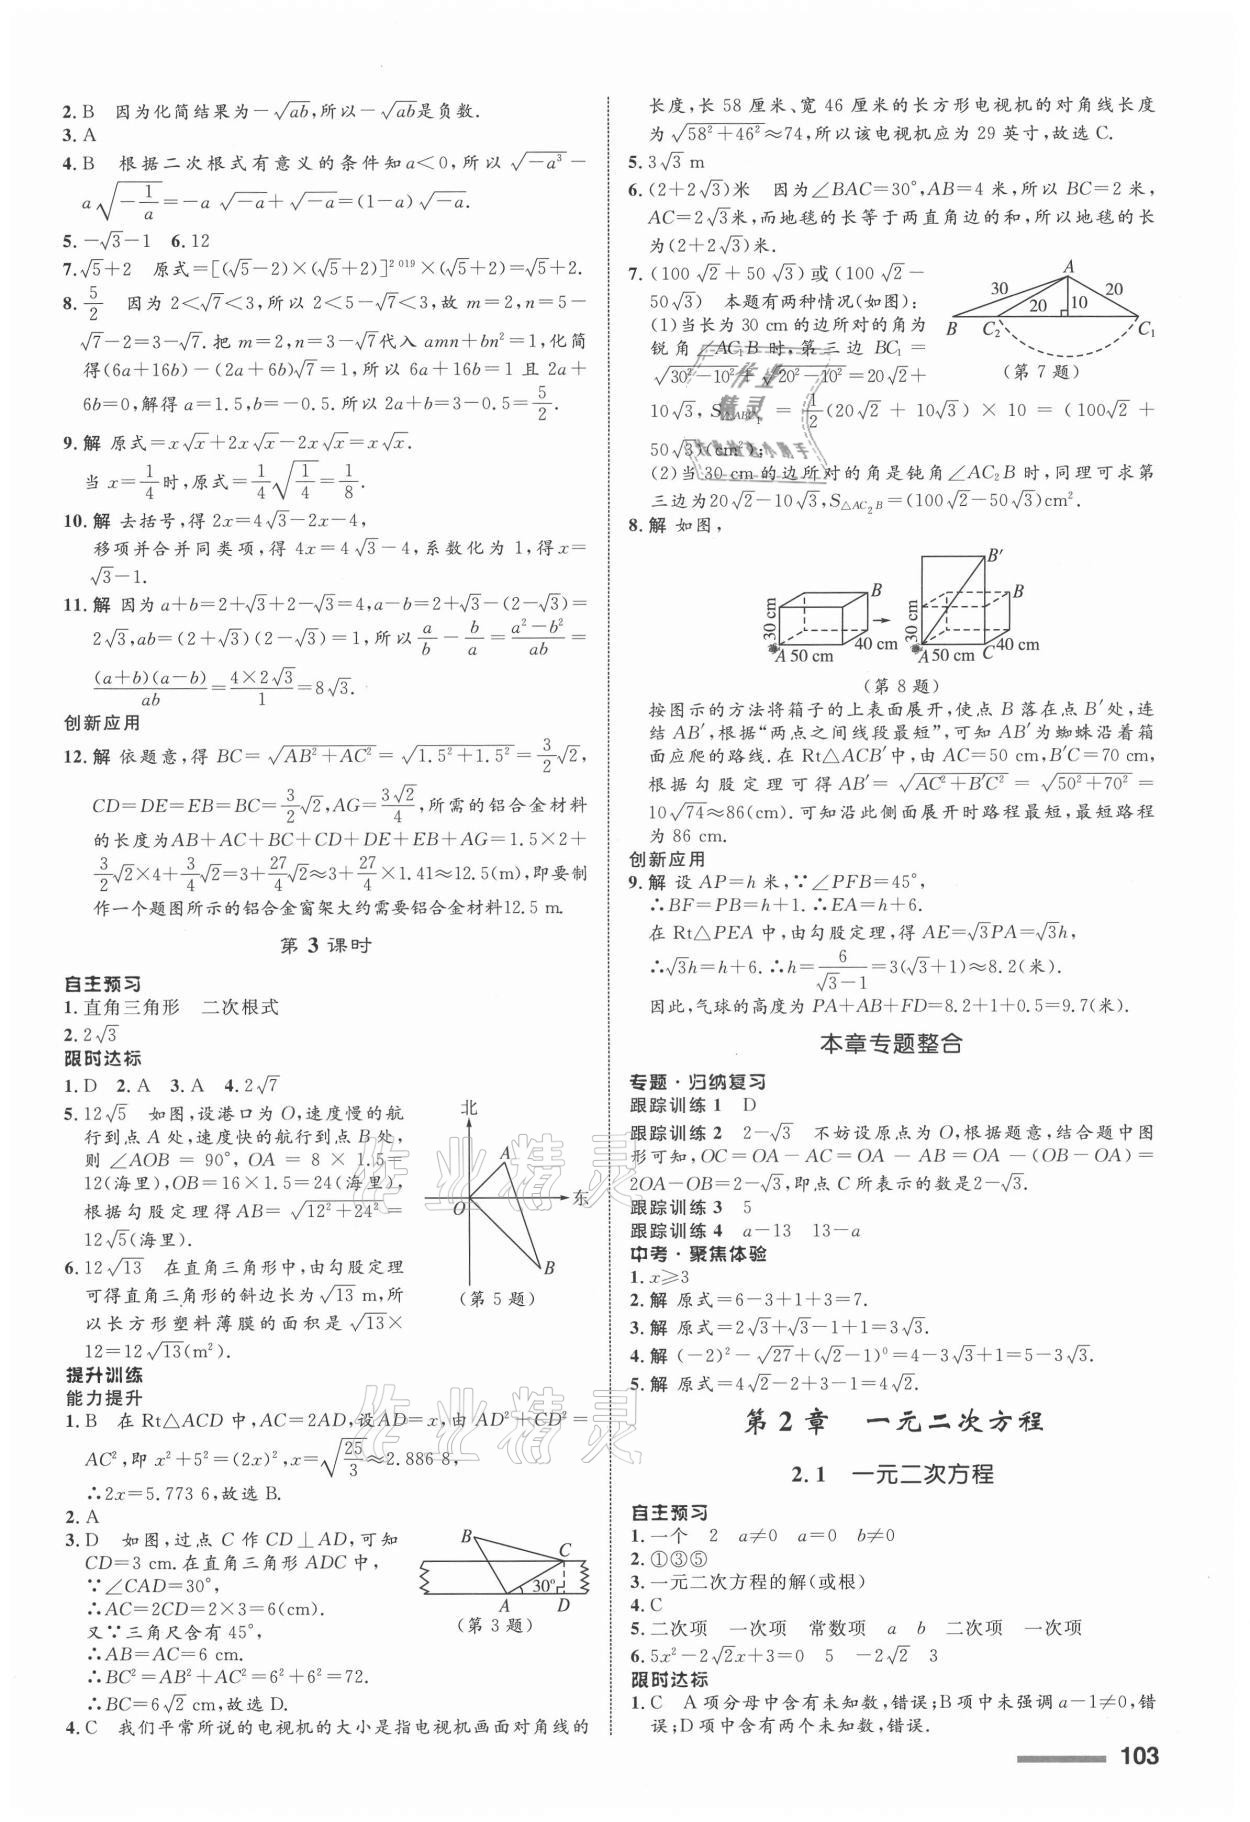 2. B　因为化简结果为－√ab,所以－√ab是负数.
3. A
4. B　根据二次根式有意义的条件知a＜0,所以 √−a³－
a√(−1/a)=−a √−a+√−a=(1−a)√−a.
5. −√3−1　6. 12
7. √5+2　原式=[(√5−2)×(√5+2)]²⁰¹⁹×(√5+2)=√5+2.
8. 5/2　因为 2＜√7＜3,所以 2＜5−√7＜3,故 m=2,n=5−
√7−2=3−√7.把 m=2,n=3−√7代入 amn+bn²=1,化简
得(6a+16b)−(2a+6b)√7=1,所以 6a+16b=1 且 2a+
6b=0,解得 a=1.5,b=−0.5.所以 2a+b=3−0.5=5/2.
9. 解 原式=x√x+2x√x−2x√x=x√x.
当 x=1/4时,原式=1/4√(1/4)=1/8.
10. 解 去括号,得 2x=4√3−2x−4,
移项并合并同类项,得 4x=4√3−4,系数化为 1,得x=
√3−1.
11. 解 因为 a+b=2+√3+2−√3=4,a−b=2+√3−(2−√3)=
2√3,ab=(2+√3)(2−√3)=1,所以 a/b−b/a=(a²−b²)/ab=
(a+b)(a−b)/ab=4×2√3/1=8√3.
创新应用
12. 解 依题意,得 BC=√(AB²+AC²)=√(1.5²+1.5²)=3/2√2,
CD=DE=EB=BC=3/2√2,AG=3√2/4,所需的铝合金材料
的长度为AB+AC+BC+CD+DE+EB+AG=1.5×2+
3/2√2×4+3/4√2=3+27/4√2≈3+27/4×1.41≈12.5(m),即要制
作一个题图所示的铝合金窗架大约需要铝合金材料12.5 m.
第 3 课时
自主预习
1. 直角三角形　二次根式
2. 2√3
限时达标
1. D　2. A　3. A　4. 2√7
5. 12√5　如图,设港口为 O,速度慢的航
行到点 A 处,速度快的航行到点 B 处,
则 ∠AOB = 90°, OA = 8 × 1.5=
12(海里),OB=16×1.5=24(海里),
根据勾股定理得AB=√(12²+24²)=
12√5(海里).
北
A
O
东
B
(第 5 题)
6. 12√13　在直角三角形中,由勾股定理
可得直角三角形的斜边长为√13 m,所
以长方形塑料薄膜的面积是 √13×
12=12√13(m²).
提升训练
能力提升
1. B　在 Rt△ACD 中,AC=2AD,设AD=x,由 AD²+CD²=
AC²,即 x²+5²=(2x)²,x=√(25/3)≈2.886 8,
∴2x=5.773 6,故选 B.
2. A
3. D　如图,过点 C 作 CD⊥AD,可知
CD=3 cm.在直角三角形 ADC 中,
∵∠CAD=30°,
∴AC=2CD=2×3=6(cm).
又∵三角尺含有 45°,
∴AB=AC=6 cm.
∴BC²=AB²+AC²=6²+6²=72.
∴BC=6√2 cm,故选 D.
B
C
30°
A
D
(第 3 题)
4. C　我们平常所说的电视机的大小是指电视机画面对角线的
长度,长 58 厘米、宽 46 厘米的长方形电视机的对角线长度
为√(58²+46²)≈74,所以该电视机应为 29 英寸,故选 C.
5. 3√3 m
6. (2+2√3)米　因为∠BAC=30°,AB=4 米,所以 BC=2 米,
AC=2√3米,而地毯的长等于两直角边的和,所以地毯的长
为(2+2√3)米.
7. (100√2+50√3)或(100√2−
50√3)　本题有两种情况(如图):
(1)当长为 30 cm 的边所对的角为
锐角 ∠AC₁B 时,第三边 BC₁ =
√(30²−10²)+√(20²−10²)=20√2+
10√3, S△ABC₁ = 1/2(20√2 + 10√3) × 10 = (100√2 +
50√3)(cm²);
A
30
20
20
10
B
C₂
C₁
(第 7 题)
(2)当 30 cm 的边所对的角是钝角∠AC₂B 时,同理可求第
三边为20√2−10√3,S△AC₂B=(100√2−50√3)cm².
8. 解 如图,
B
30 cm
40 cm
A 50 cm
B′
B
30 cm
40 cm
A 50 cm C
(第 8 题)
按图示的方法将箱子的上表面展开,使点 B 落在点 B′处,连
结 AB′,根据“两点之间线段最短”,可知 AB′为蜘蛛沿着箱
面应爬的路线.在 Rt△ACB′中,由 AC=50 cm,B′C=70 cm,
根据勾股定理可得 AB′= √(AC²+B′C²) = √(50²+70²) =
10√74≈86(cm).可知沿此侧面展开时路程最短,最短路程
为 86 cm.
创新应用
9. 解 设 AP=h 米,∵∠PFB=45°,
∴BF=PB=h+1.∴EA=h+6.
在 Rt△PEA 中,由勾股定理,得 AE=√3PA=√3h,
∴√3h=h+6.∴h=6/(√3−1)=3(√3+1)≈8.2(米).
因此,气球的高度为 PA+AB+FD=8.2+1+0.5=9.7(米).
本章专题整合
专题·归纳复习
跟踪训练 1　D
跟踪训练 2　2−√3　不妨设原点为 O,根据题意,结合题中图
形可知,OC=OA−AC=OA − AB=OA −(OB−OA)=
2OA−OB=2−√3,即点 C 所表示的数是2−√3.
跟踪训练 3　5
跟踪训练 4　a−13　13−a
中考·聚焦体验
1. x⩾3
2. 解 原式=6−3+1+3=7.
3. 解 原式=2√3+√3−1+1=3√3.
4. 解 (−2)²−√27+(√2−1)⁰=4−3√3+1=5−3√3.
5. 解 原式=4√2−2+3−1=4√2.
第 2 章　一元二次方程
2.1　一元二次方程
自主预习
1. 一个　2　a≠0　a=0　b≠0
2. ①③⑤
3. 一元二次方程的解(或根)
4. C
5. 二次项　一次项　常数项　a　b　二次项　一次项
6. 5x²−2√2x+3=0　5　−2√2　3
限时达标
1. C　A 项分母中含有未知数,错误;B 项中未强调 a−1≠0,错
误;D 项中含有两个未知数,错误.
103
作业精灵
作业精灵
作业
精灵